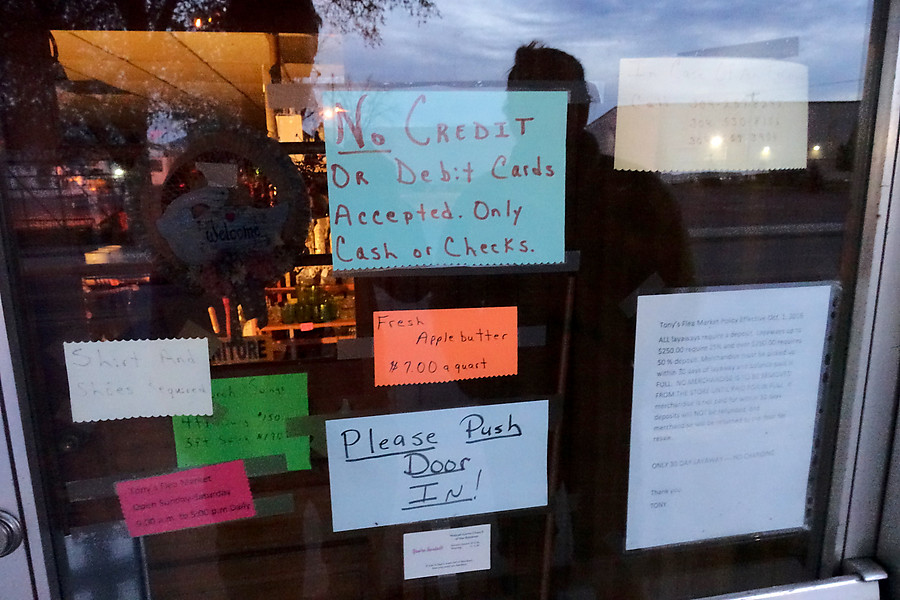 No CREDIT
OR Debit Cards
Accepted. Only
Cash or Checks.
Welcome
Fresh
Apple butter
$7.00 a quart
NITURE
Shirt And
Shoes Required
Swings
4ft Swing $150
5ft Swing $170
Please Push
Door
IN!
Tony's Flea Market
Open Sunday-Saturday
9:00 a.m. to 5:00 p.m Daily
Tony's Flea Market Policy Effective Oct. 1, 2018
ALL layaways require a deposit. Layaways up to
$250.00 require 25% and over $250.00 requires
50 % deposit. Merchandise must be picked up
within 30 days of layaway and balance paid in
FULL. NO MERCHANDISE IS TO BE REMOVED
FROM THE STORE UNTIL PAID FOR IN FULL. If
merchandise is not paid for within 30 days
deposit will NOT be refunded and
merchandise will be returned to the floor for
resale.
ONLY 30 DAY LAYAWAY
Thank you
TONY